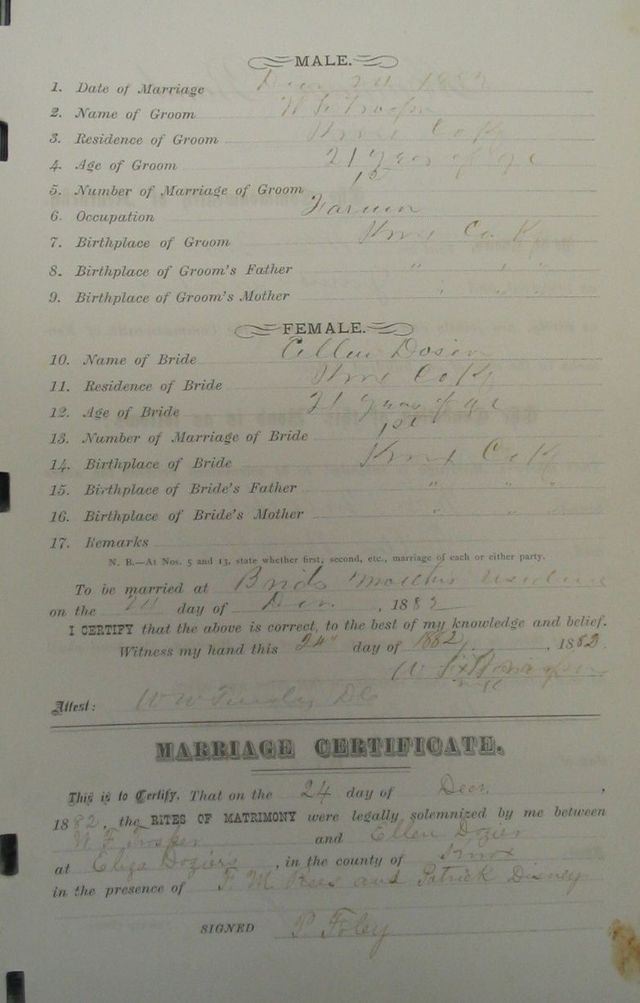 MALE.
1. Date of Marriage Decr 24 1882
2. Name of Groom W F Trosper
3. Residence of Groom Knox Co Ky
4. Age of Groom 21 years of age
5. Number of Marriage of Groom 1st
6. Occupation Farmer
7. Birthplace of Groom Knox Co. K
8. Birthplace of Groom's Father " " "
9. Birthplace of Groom's Mother " " "
FEMALE.
10. Name of Bride Ellen Dosier
11. Residence of Bride Knox Co Ky
12. Age of Bride 21 years of age
13. Number of Marriage of Bride 1st
14. Birthplace of Bride Knox Co Ky
15. Birthplace of Bride's Father " " "
16. Birthplace of Bride's Mother " " "
17. Remarks
N. B.—At Nos. 5 and 13, state whether first, second, etc., marriage of each or either party.
To be married at Brids Mothers Residence
on the 24 day of Decr. , 1882
I CERTIFY that the above is correct, to the best of my knowledge and belief.
Witness my hand this 24" day of 1882 , 1882.
W F Trosper
Attest: W W Tinsley DC
MARRIAGE CERTIFICATE.
This is to Certify, That on the 24 day of Decr. ,
1882, the RITES OF MATRIMONY were legally solemnized by me between
W F Trosper and Ellen Dozier
at Eliza Doziers , in the county of Knox
in the presence of F. M. and Patrick Disney
SIGNED P. Foley